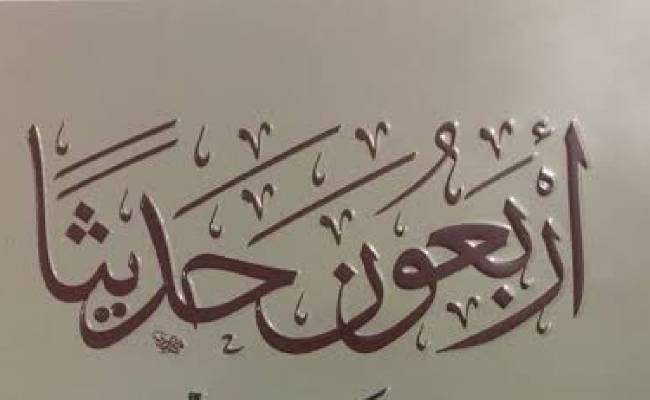 أربعون حديثًا